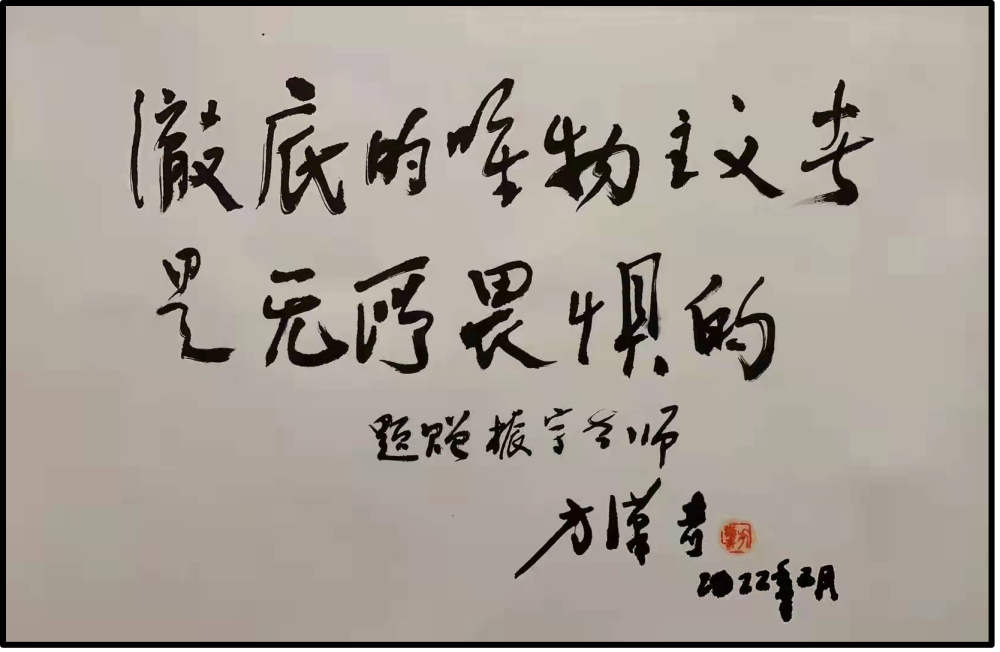 徹底的唯物主义者
是无所畏惧的
题赠振宇老师
方漢奇
2022年 月